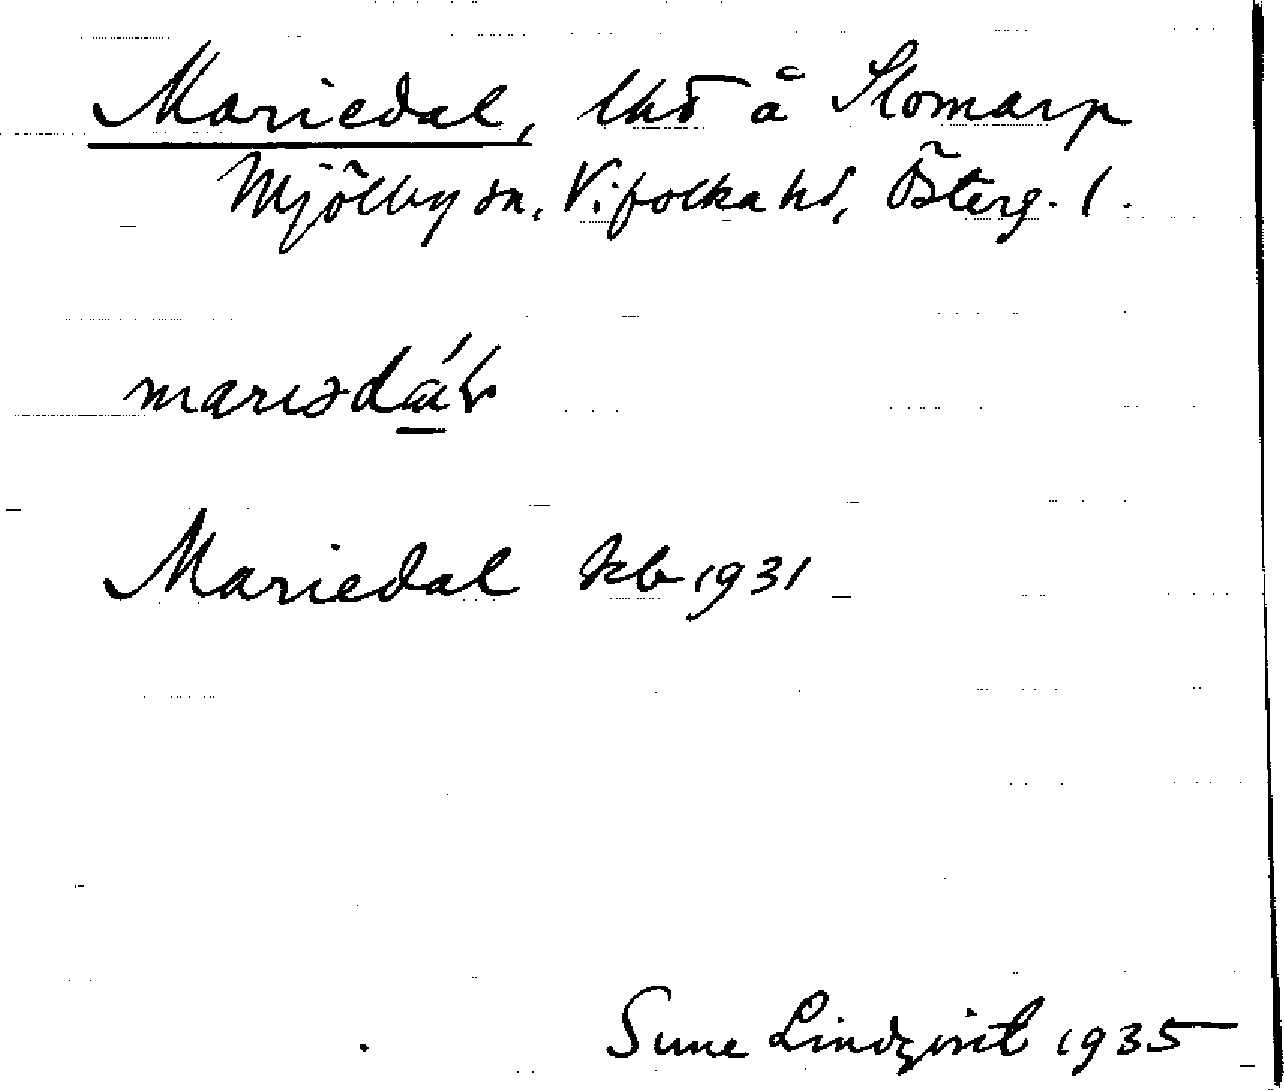 Mariedal, lhs å Slomarp
Mjölby sn, Vifolka hd, Österg. l.
mariedál
Mariedal kb 1931
Sune Lindqvist 1935